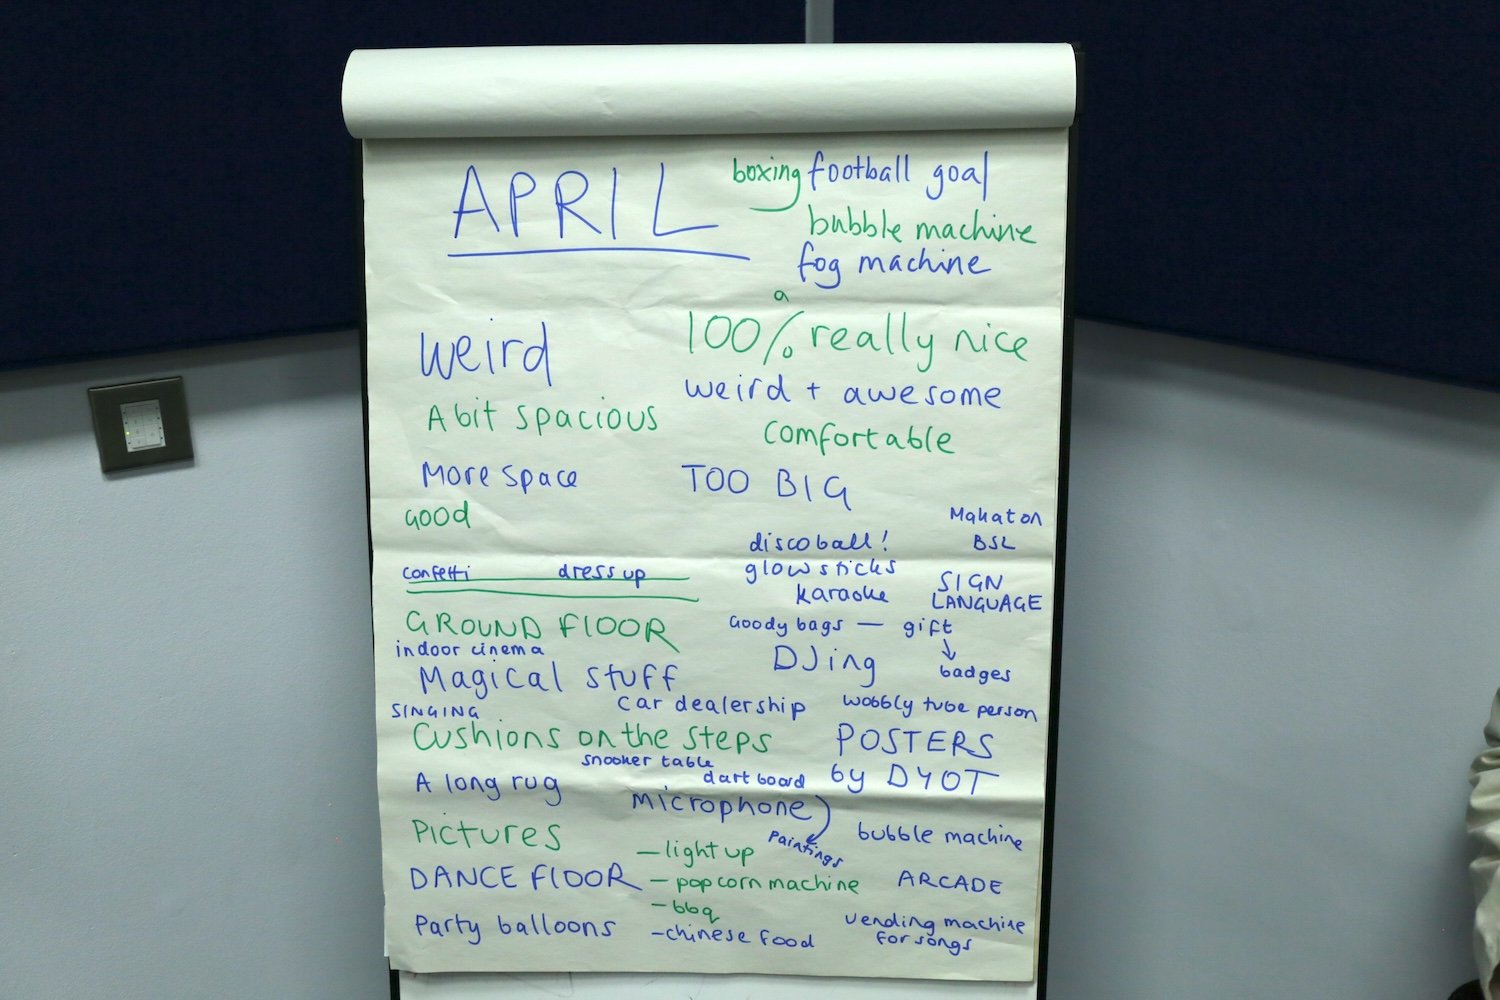 APRIL
boxing football goal
bubble machine
fog machine
a
weird
100% really nice
weird + awesome
A bit spacious
comfortable
More space
TOO BIG
Good
Makaton
BSL
disco ball!
confetti
dress up
glowsticks
SIGN
LANGUAGE
karaoke
GROUND FLOOR
Goody bags — gift
↓
badges
indoor cinema
DJing
Magical stuff
SINGING
car dealership
wobbly tube person
Cushions on the steps
POSTERS
by DYOT
snooker table
dart board
A long rug
microphone
paintings
Pictures
bubble machine
— light up
DANCE FLOOR
— popcorn machine
ARCADE
— bbq
Party balloons
— chinese food
vending machine
for songs